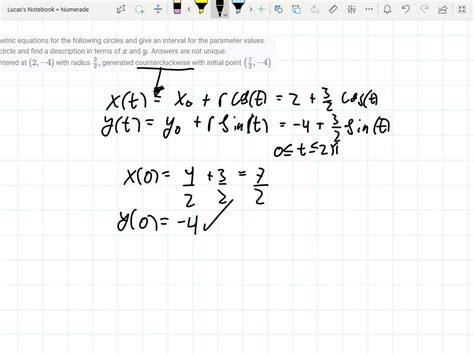 Lucas's Notebook » Numerade
netric equations for the following circles and give an interval for the parameter values.
circle and find a description in terms of x and y. Answers are not unique.
ntered at (2, −4) with radius 3/2, generated counterclockwise with initial point (7/2, −4)
x(t) = x₀ + r cos(t) = 2 + 3/2 cos(t)
y(t) = y₀ + r sin(t) = −4 + 3/2 sin(t)
0 ≤ t ≤ 2π
x(0) = 4/2 + 3/2 = 7/2
y(0) = −4 ✓